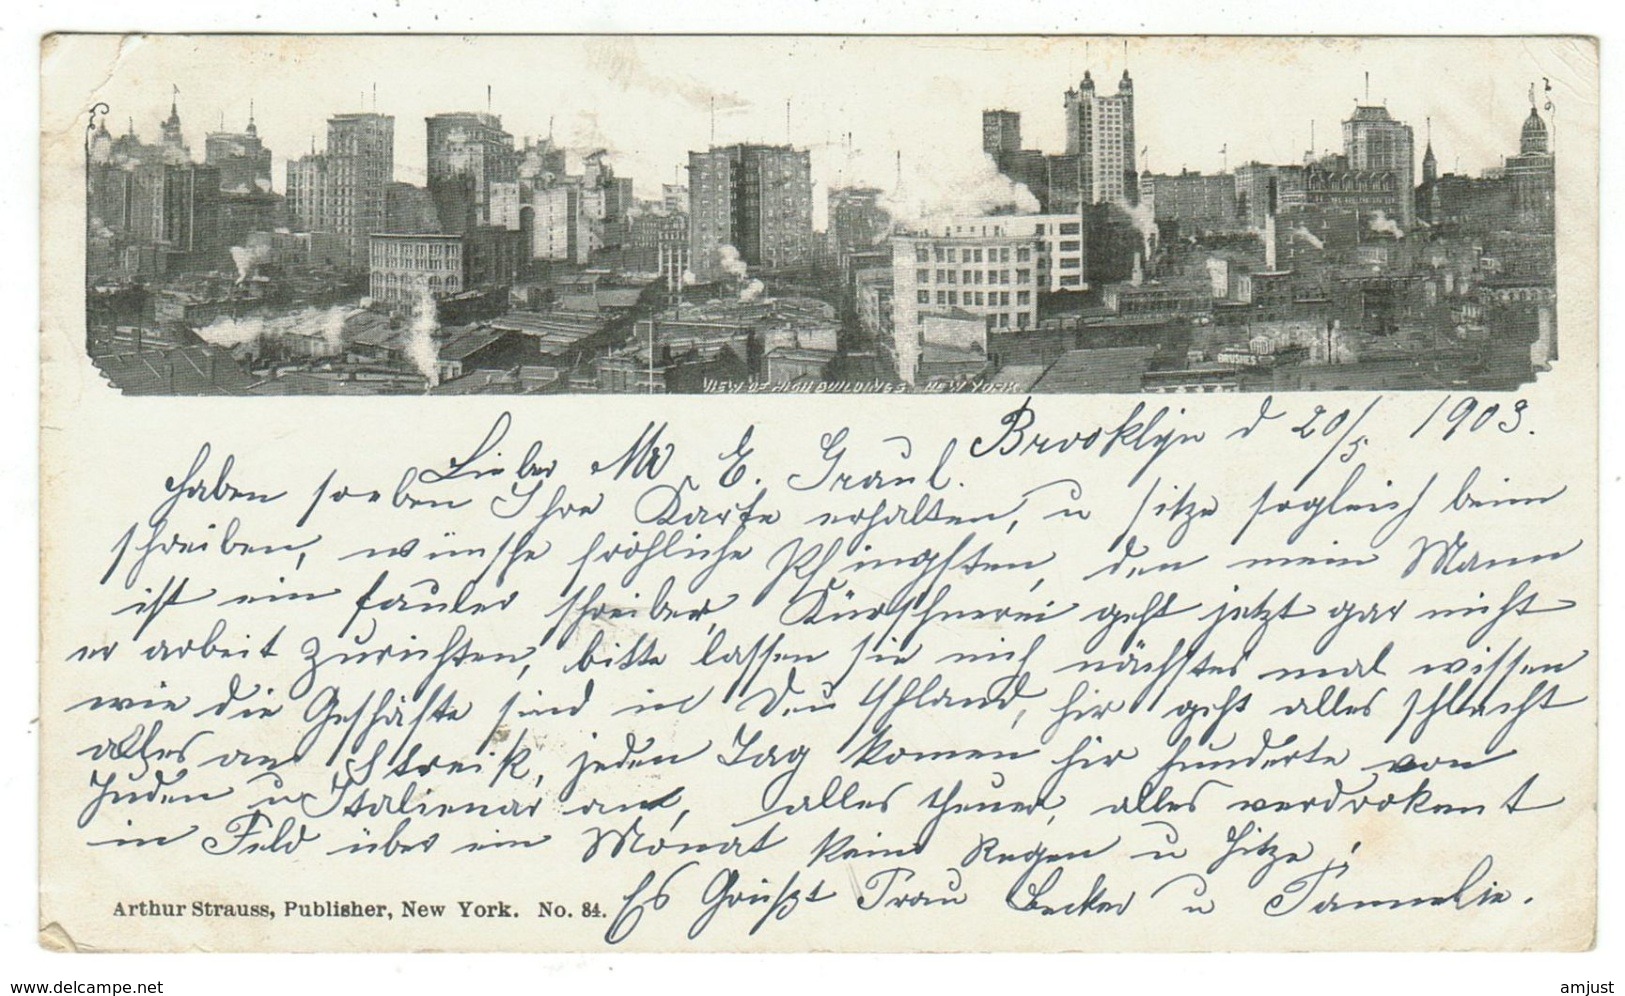 BRUSHES
VIEW OF HIGH BUILDINGS. NEW YORK.
Brooklyn d 20/5. 1903.
Lieber Mr E. Graul.
haben soeben Ihre Karte erhalten, u sitze sogleich beim
schreiben, wünsche fröhliche Pfingsten, den mein Mann
ist ein fauler schreiber, Kürschnerei geht jetzt gar nicht
er arbeit zurichten, bitte lassen sie mich nächstes mal wissen
wie die Geschäfte sind in Deutschland, hir geht alles schlecht
alles am Streik, jeden Tag komen hir hunderte von
Juden u Italienar an, alles theuer, alles verdrokent
in Feld über ein Monat kein Regen u hitze,
Es Grüßt Frau Becker u Fammelie.
Arthur Strauss, Publisher, New York. No. 84.
www.delcampe.net
amjust